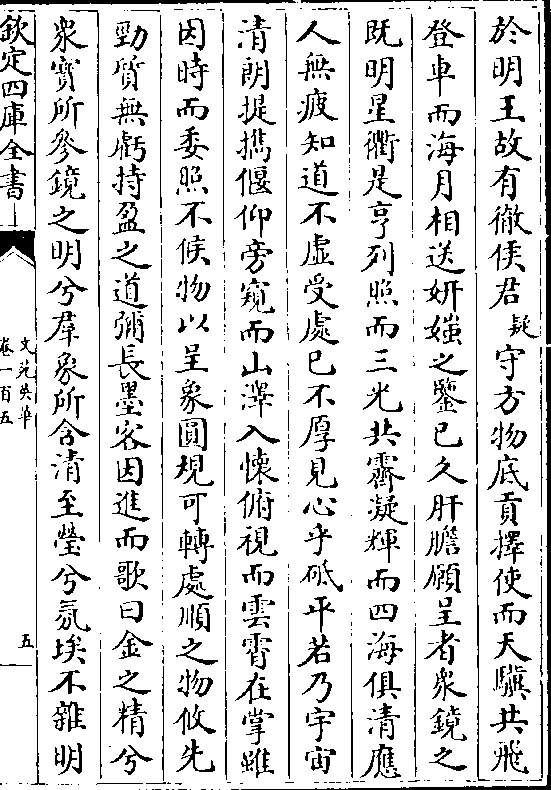 於明王故有徹侯君疑守方物底貢擇使而天驥共飛
登車而海月相送妍媸之鑒已久肝膽願呈者衆鏡之
既明星衢是亨列照而三光共霽凝輝而四海俱清應
人無疲知道不虛受處已不厚見心乎砥平若乃宇宙
清朗提攜偃仰旁窺而山澤入懷俯視而雲霄在掌雖
因時而委照不候物以呈象圓規可轉處順之物攸先
勁質無虧持盈之道彌長墨客因進而歌曰金之精兮
衆寶所參鏡之明兮羣象所含清至瑩兮氛埃不雜明
欽定四庫全書
文苑英華
卷一百五
五